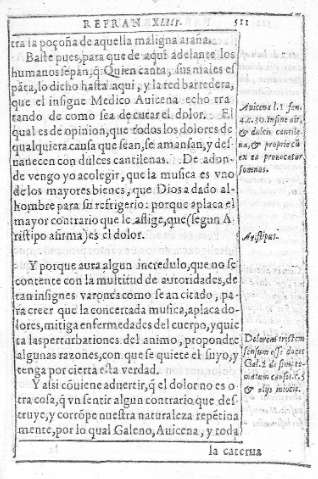 REFRAN XLIII.
511
tra la poçoña de aquella maligna araña.
Baste pues, para que de aqui adelante los
humanos sepan, q̃: Quien canta, sus males es
pãta, lo dicho hasta aqui, y la red barredera,
que el insigne Medico Auicena echo tra
tando de como sea de curar el dolor. El
qual es de opinion, que todos los dolores de
qualquiera causa que sean, se amansan, y des
uanecen con dulces cantilenas. De adon-
de vengo yo acolegir, que la musica es vno
de los mayores bienes, que Dios a dado al
hombre para su refrigerio: porque aplaca el
mayor contrario que le aflige, que (segun A
ristipo afirma) es el dolor.
Y porque aura algun incredulo, que no se
contente con la multitud de autoridades, de
tan insignes varones como se an citado, pa
ra creer que la concertada musica, aplaca do
lores, mitiga enfermedades del cuerpo, y qui
ta las perturbationes del animo, propondre
algunas razones, con que se quiete el suyo, y
tenga por cierta esta verdad.
Y assi cõuiene aduertir, q̃ el dolor no es o
tra cosa, q̃ vn sentir algun contrario que des
truye, y corrõpe nuestra naturaleza repẽtina
mente, por lo qual Galeno, Auicena, y toda
la caterua
Auicena l. 1 fen.
4. c. 30. in fine air,
& dulcis cantile-
na, & propriè cũ
ex ea prouocetur
somnus.
Aristipus.
Dolorem tristem
sensum esse docet
Gal. 2. de
& alijs in locis.